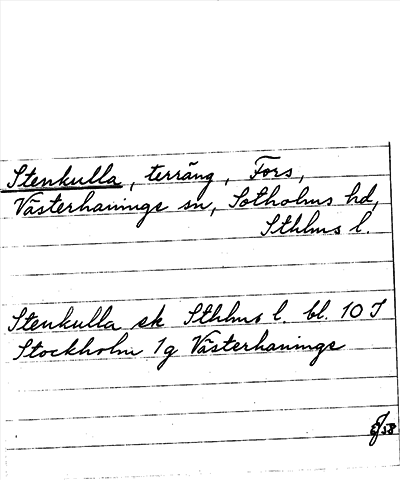 Stenkulla, terräng, Fors,
Västerhaninge sn, Sotholms hd,
Sthlms l.
Stenkulla ek Sthlms l. bl. 10 I
Stockholm 1g Västerhaninge